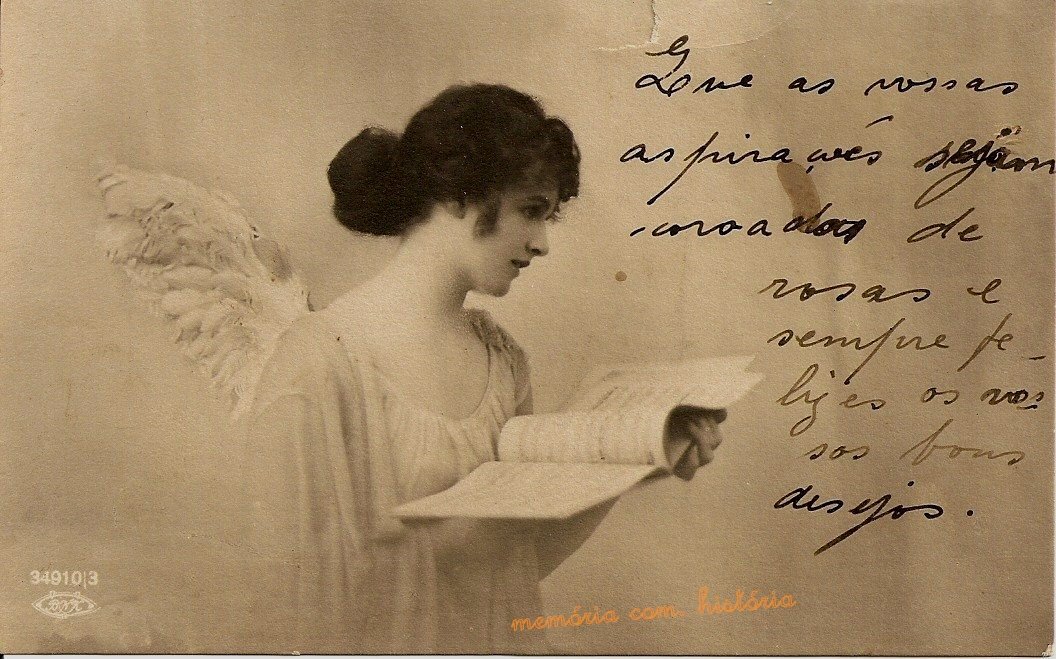 Que as vossas
aspirações sejam
coroadas de
rosas e
sempre fe-
lizes os vos-
sos bons
desejos.
34910/3
memória com história